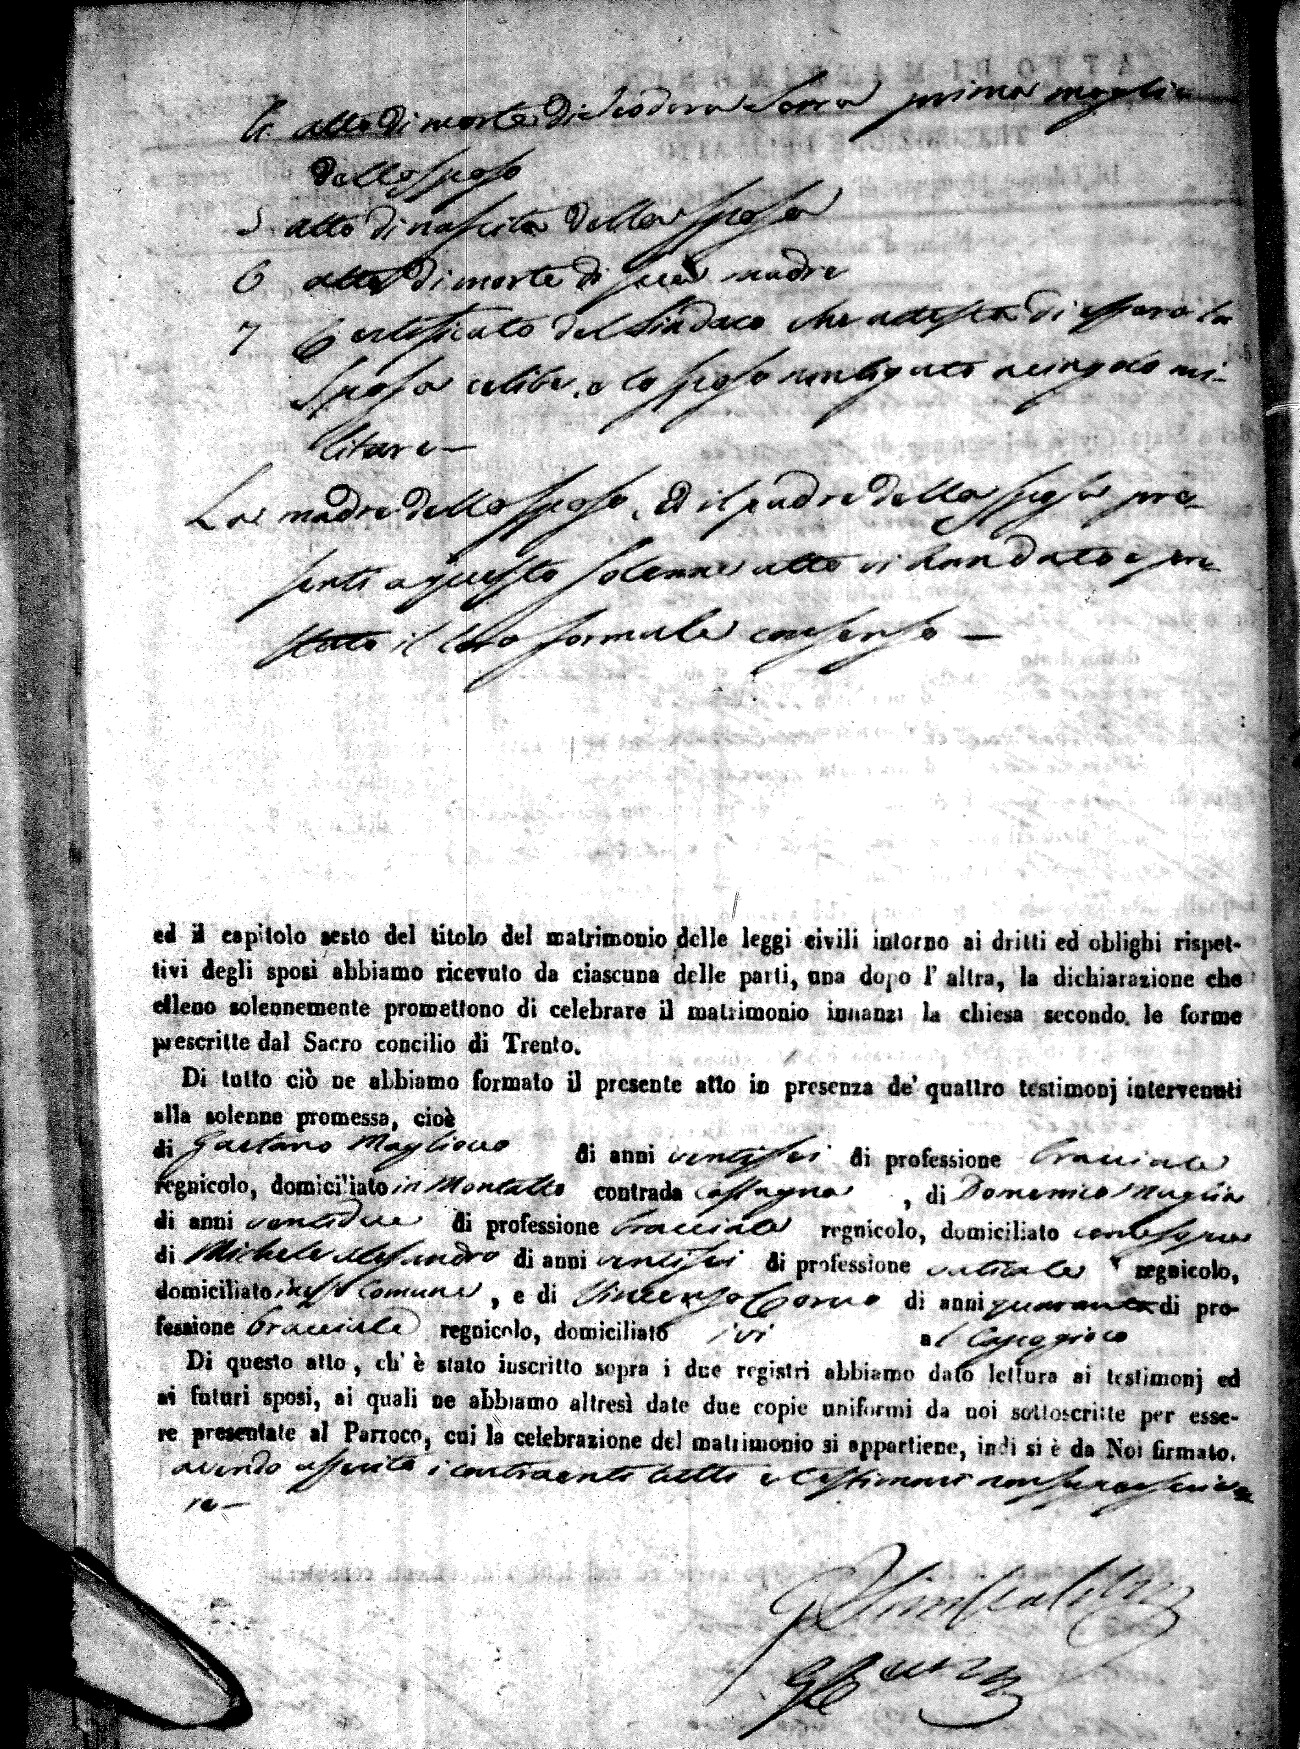 4. atto di morte di Teodora Serra prima moglie
dello sposo
5 atto di nascita della sposa
6 atto di morte di sua madre
7 Certificato del Sindaco che attesta di essere la
sposa celibe, e lo sposo non ligato a cingolo mi-
litare —
La madre dello sposo, ed il padre della sposa pre-
senti a questo solenne atto vi han dato e pre-
stato il loro formale consenso —
ed il capitolo sesto del titolo del matrimonio delle leggi civili intorno ai dritti ed oblighi rispet-
tivi degli sposi abbiamo ricevuto da ciascuna delle parti, una dopo l' altra, la dichiarazione che
elleno solennemente promettono di celebrare il matrimonio innanzi la chiesa secondo le forme
prescritte dal Sacro concilio di Trento.
Di tutto ciò ne abbiamo formato il presente atto in presenza de' quattro testimonj intervenuti
alla solenne promessa, cioè
di Gaetano Magliocco di anni ventisei di professione bracciale
regnicolo, domiciliato in Montalto contrada Caldopiano, di Domenico Maglia
di anni ventidue di professione bracciale regnicolo, domiciliato come sopra
di Michele Alesandro di anni ventisei di professione vaticale regnicolo,
domiciliato in esso Comune, e di Vincenzo Corno di anni quaranta di pro-
fessione bracciale regnicolo, domiciliato ivi al
Di questo atto, ch' è stato inscritto sopra i due registri abbiamo dato lettura ai testimonj ed
ai futuri sposi, ai quali ne abbiamo altresì date due copie uniformi da noi sottoscritte per esse-
re presentate al Parroco, cui la celebrazione del matrimonio si appartiene, indi si è da Noi firmato.
avendo asserito i contraenti tutti e testimoni non saper scrive-
re —